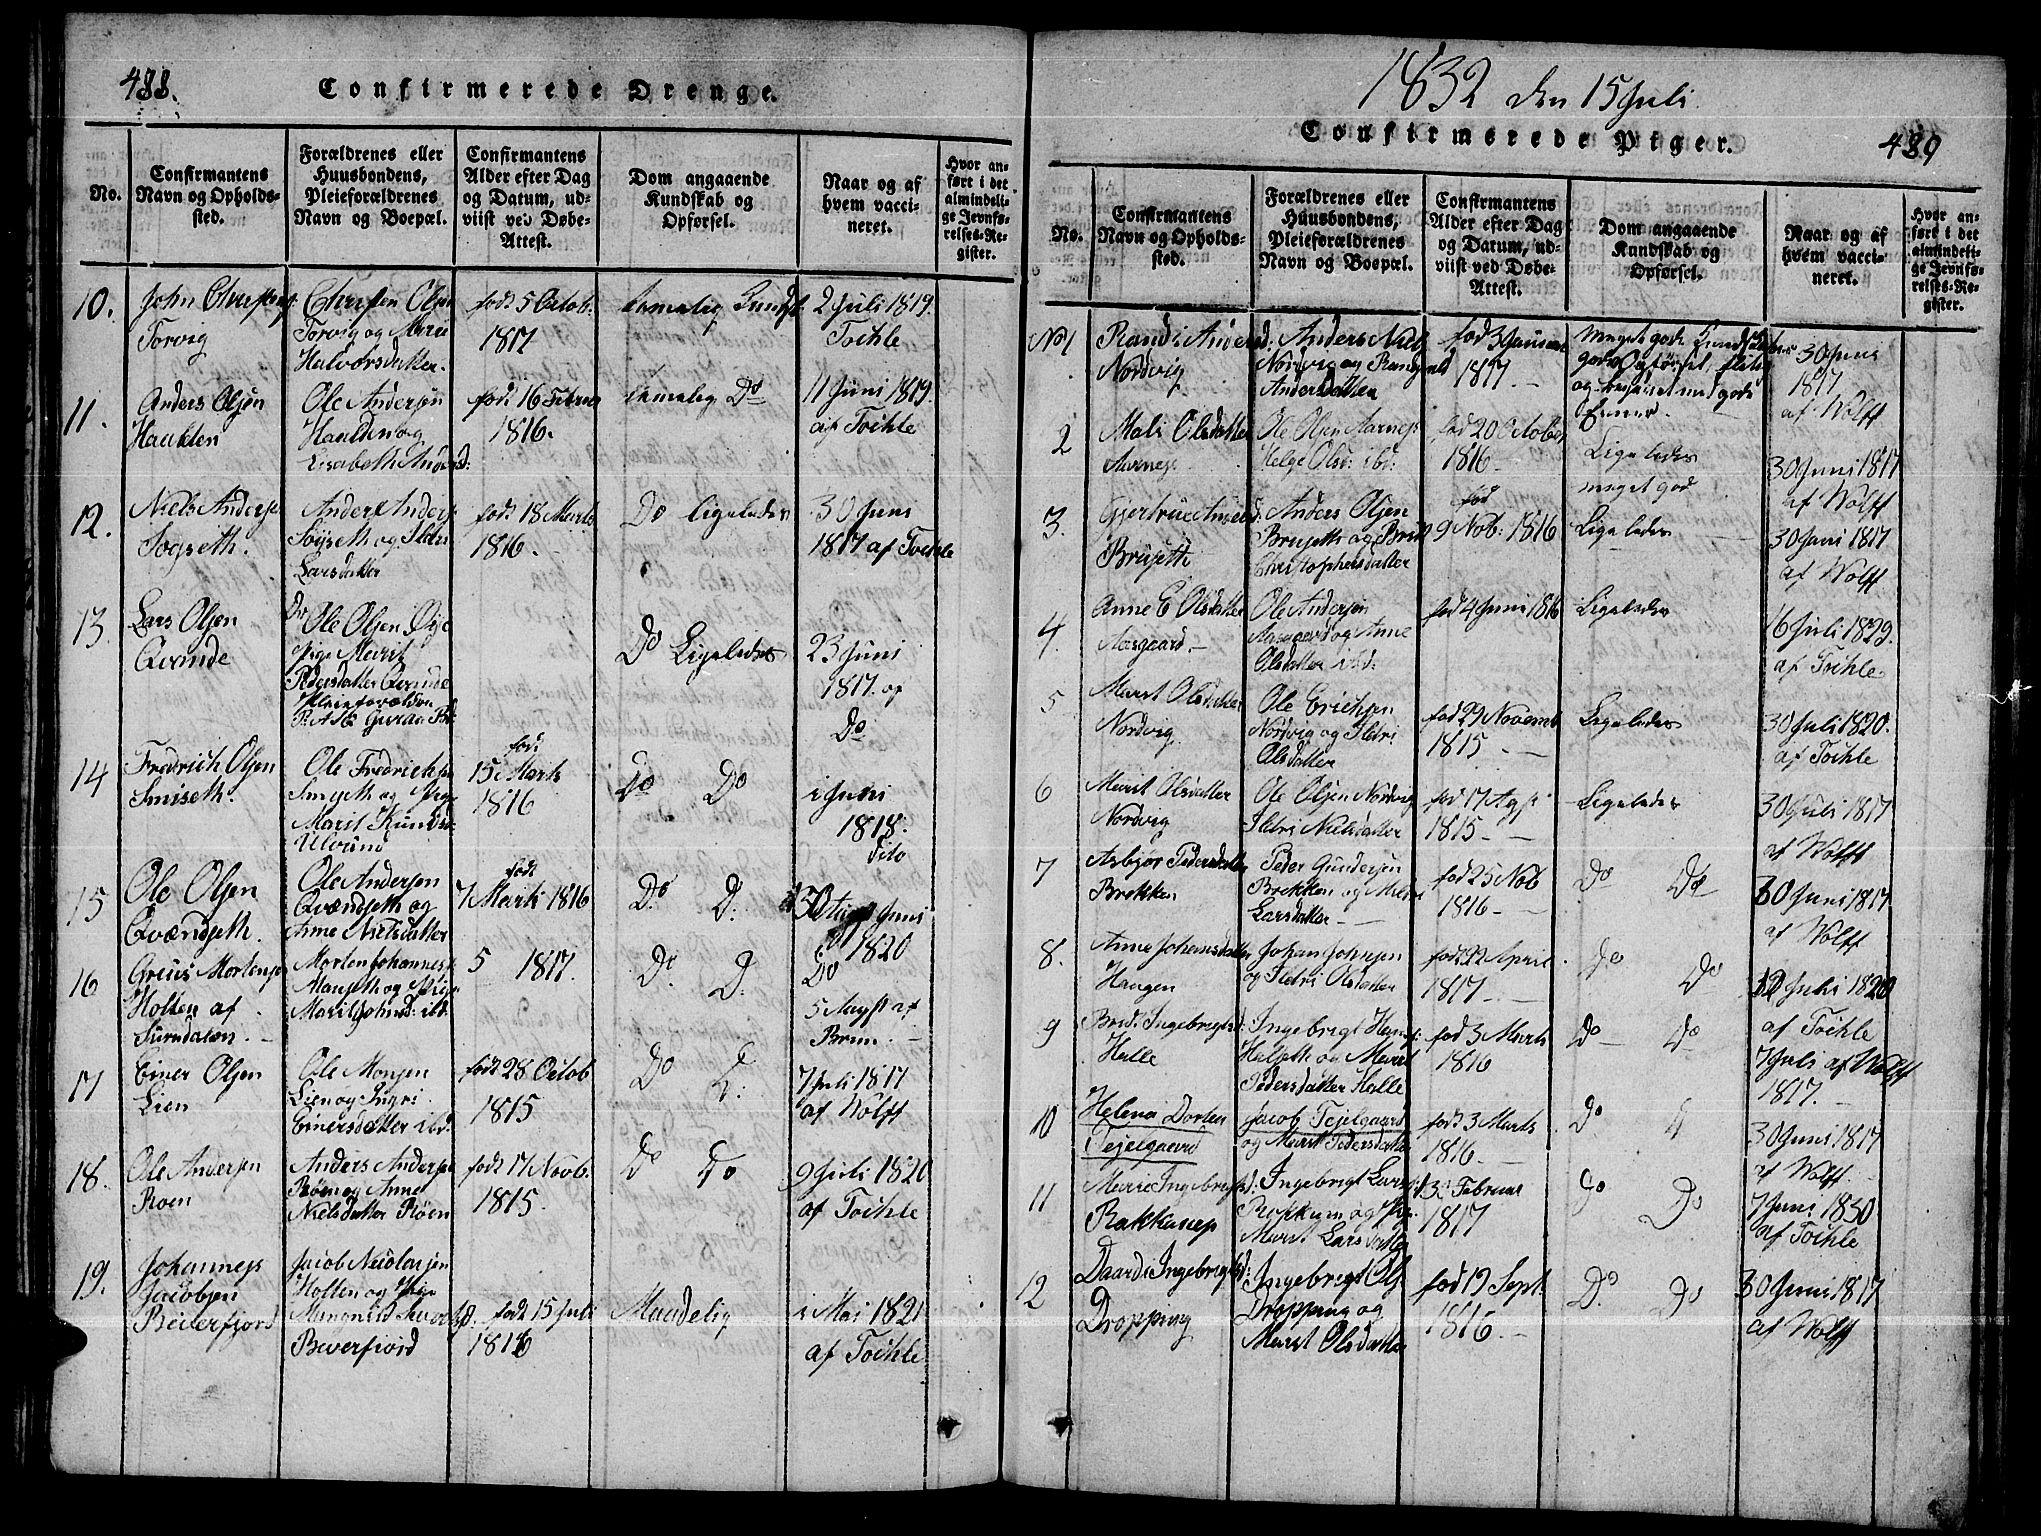 488.
Confirmerede Drenge.
No.
Confirmantens
Navn og Opholds-
sted.
Forældrenes eller
Huusbondens,
Pleieforældrenes
Navn og Boepæl.
Confirmantens
Alder efter Dag
og Datum, ud-
viist ved Døbe-
Attest.
Dom angaaende
Kundskab og
Opførsel.
Naar og af
hvem vacci-
neret.
Hvor an-
ført i det
almindeli-
ge Jevnfø-
relses-Re-
gister.
10.
Torvig
Christen Olsen
Torvig og
Halvorsdatter.
født 5 Octob.
1817
temelig
2 Juli 1819.
Toihle
11.
Anders Olsen
Haukten
Ole Andersen
og
Lisabeth Anders d:
født 16 Februar
1816.
temelig Do
11 Juni 1819.
af Toihle
12.
Niels Anders
Sogseth.
Anders Anders
Sogseth og Ildri
Larsdatter
født 18 Marts
1816.
Do ligeledes
30 Juni
1817 af Toihle
13
Lars Olsen
Qvinde
Ole Olsen Øye
Pige Marit
Pedersdatter Qvinde
Pleieforældre
Do Ligeledes
23 Juni
1817. af
Do
14
Fredrich Olsen
Smiseth.
Ole Fredrichsen
Smiseth og Pige
Marit Knuds
Ulvund
født
15 Marts
1816
Do Do
1 Juni
1818.
dito
15
Ole Olsen
Qvændseth.
Ole Andersen
Qvændseth og
Anne Nielsdatter
født
7 Marts 1816
D. D.
Juni
1820
16
Mortensen
Holten af
Surndalen.
Morten Johannes
og Pige
Marit
5 1817
D. D.
Do
5 af
Brun.
17
Einer Olsen
Lien
Ole Monsen
Lien og Ingri
Einersdatter ibd.
født 28 Octob
1815
Do D.
7 Juli 1817
af Wolff
18.
Ole Andersen
Roen
Anders Andersen
Røen og Anne
Nielsdatter Røen
født 17 Novb.
1815.
Do Do
9 Juli 1820
af Toihle
19.
Johannes
Jacobsen
Beverfjord
Jacob Nicolaisen
Holten og Pige
Beverfiord
født 15 Juli
1816
Maadelig
1 Mai 1821
af Toihle
1832 den 15 Juli.
Confirmerede Piger.
489
No.
Confirmantens
Navn og Opholds-
sted.
Forældrenes eller
Huusbondens,
Pleieforældrenes
Navn og Boepæl.
Confirmantens
Alder efter Dag
og Datum, ud-
viist ved Døbe-
Attest.
Dom angaaende
Kundskab og
Opførsel.
Naar og af
hvem vacci-
neret.
Hvor an-
ført i det
almindeli-
ge Jevnfø-
relses-Re-
gister.
No 1
Randi Anders d:
Nordvig
Anders Niels
Nordvig og
Andersdatter
fød 3 Januar
1817
meget gode Kundskaber
gode Opførsel, flittig
og begavet med gode
Evner.
30 Juni
1817
af Wolff
2
Mali Olsdatter
Aarnes
Ole Olsen Aarnes
Helge Olsd: ibd:
fød 20 October
1816
Ligeledes
meget god
30 Juni 1817
af Wolff
3.
Gjertrue Anders d:
Bruseth
Anders Olsen
Bruseth og Brit
Christophersdatter
fød
9 Nob: 1816
Ligeledes
30 Juni 1817
af Wolff
4.
Anne E Olsdatter
Aasgaard
Ole Andersen
Aasgaard og Anne
Olsdatter ibd:
fød 4 Juni 1816
Ligeledes
16 Juli 1829.
af Toihle
5
Marit Olsdatter
Nordvig
Ole Erichsen
Nordvig og Ildri
Olsdatter
fød 29 Novemb
1815
Ligeledes
30 Juli 1820.
af Toihle
6
Marit Olsdatter
Nordvig
Ole Olsen Nordvig
Ildri Nielsdatter
fød 17
1815
Ligeledes
30 Juli 1817
af Wolff
7
Asbjør Pedersdatter
Brekken
Peder Gundersen
Brekken og
Larsdatter
fød 25 Nob
1816
Do Do
30 Juni 1817
af Wolff
8.
Anne Johansdatter
Haugen
Johan Johnsen
og Ildri Olsdatter
fød 22 April
1817
Do Do
12 Juli 1820
af Toihle
9
Brit Ingebrigtsd:
Halle
Ingebrigt Hans
Halseth og Marit
Pedersdatter Halle
fød 3 Marts
1816
Do Do
7 Juli af Wolff
1817.
10
Helena Dortea
Tejelgaard
Jacob Tejelgaard
og Marit Pedersdatter
fød 3 Marts
1816
Do D
30 Juni 1817
af Wolff.
11
Ingebrigts d:
Ingebrigt Lars
og
Marit Larsdatter
Februar
1817
Do Do
7 Juni 1830
af Toihle
12
Ingebrigtsd:
Dropping
Ingebrigt Ols
Dropping og
Marit Olsdatter
fød 19 Sept.
1816.
Do Do
30 Juni 1817
af Wolff